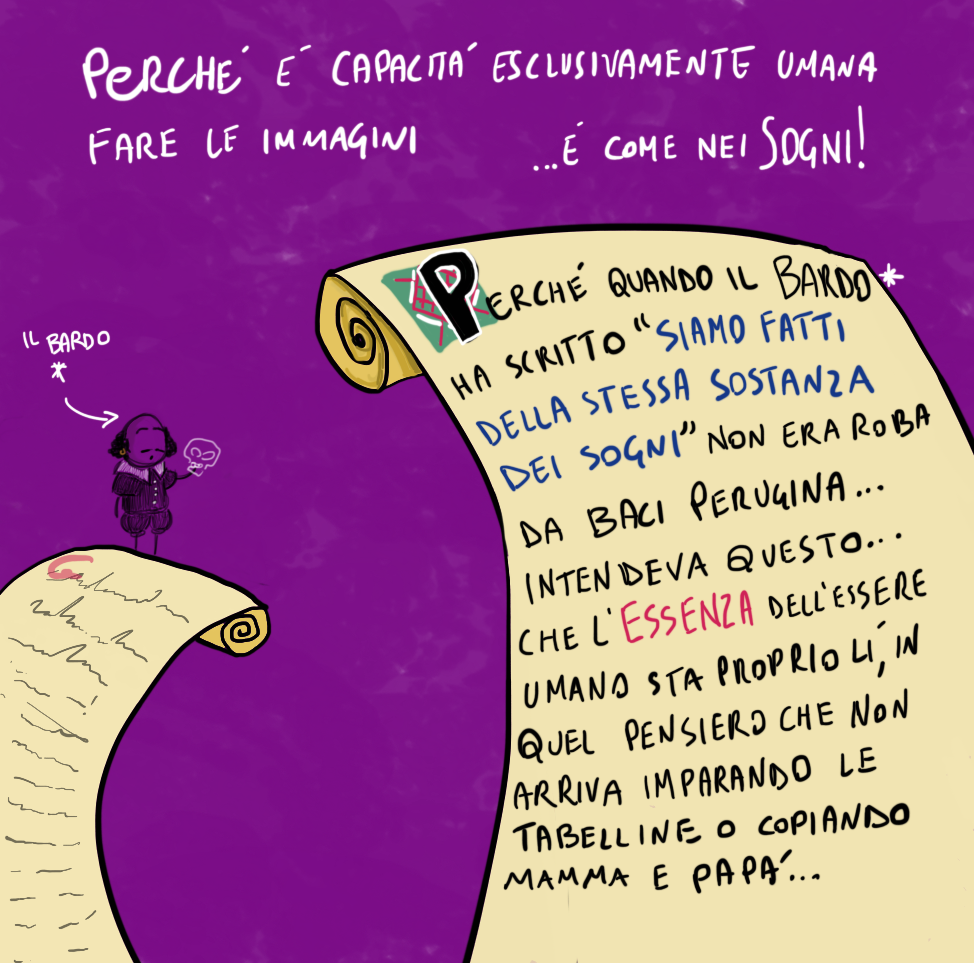 PERCHE´ E´ CAPACITA´ ESCLUSIVAMENTE UMANA
FARE LE IMMAGINI ...E´ COME NEI SOGNI!
IL BARDO
*
PERCHE´ QUANDO IL BARDO*
HA SCRITTO "SIAMO FATTI
DELLA STESSA SOSTANZA
DEI SOGNI" NON ERA ROBA
DA BACI PERUGINA...
INTENDEVA QUESTO...
CHE L'ESSENZA DELL'ESSERE
UMANO STA PROPRIO LI´, IN
QUEL PENSIERO CHE NON
ARRIVA IMPARANDO LE
TABELLINE O COPIANDO
MAMMA E PAPA´...